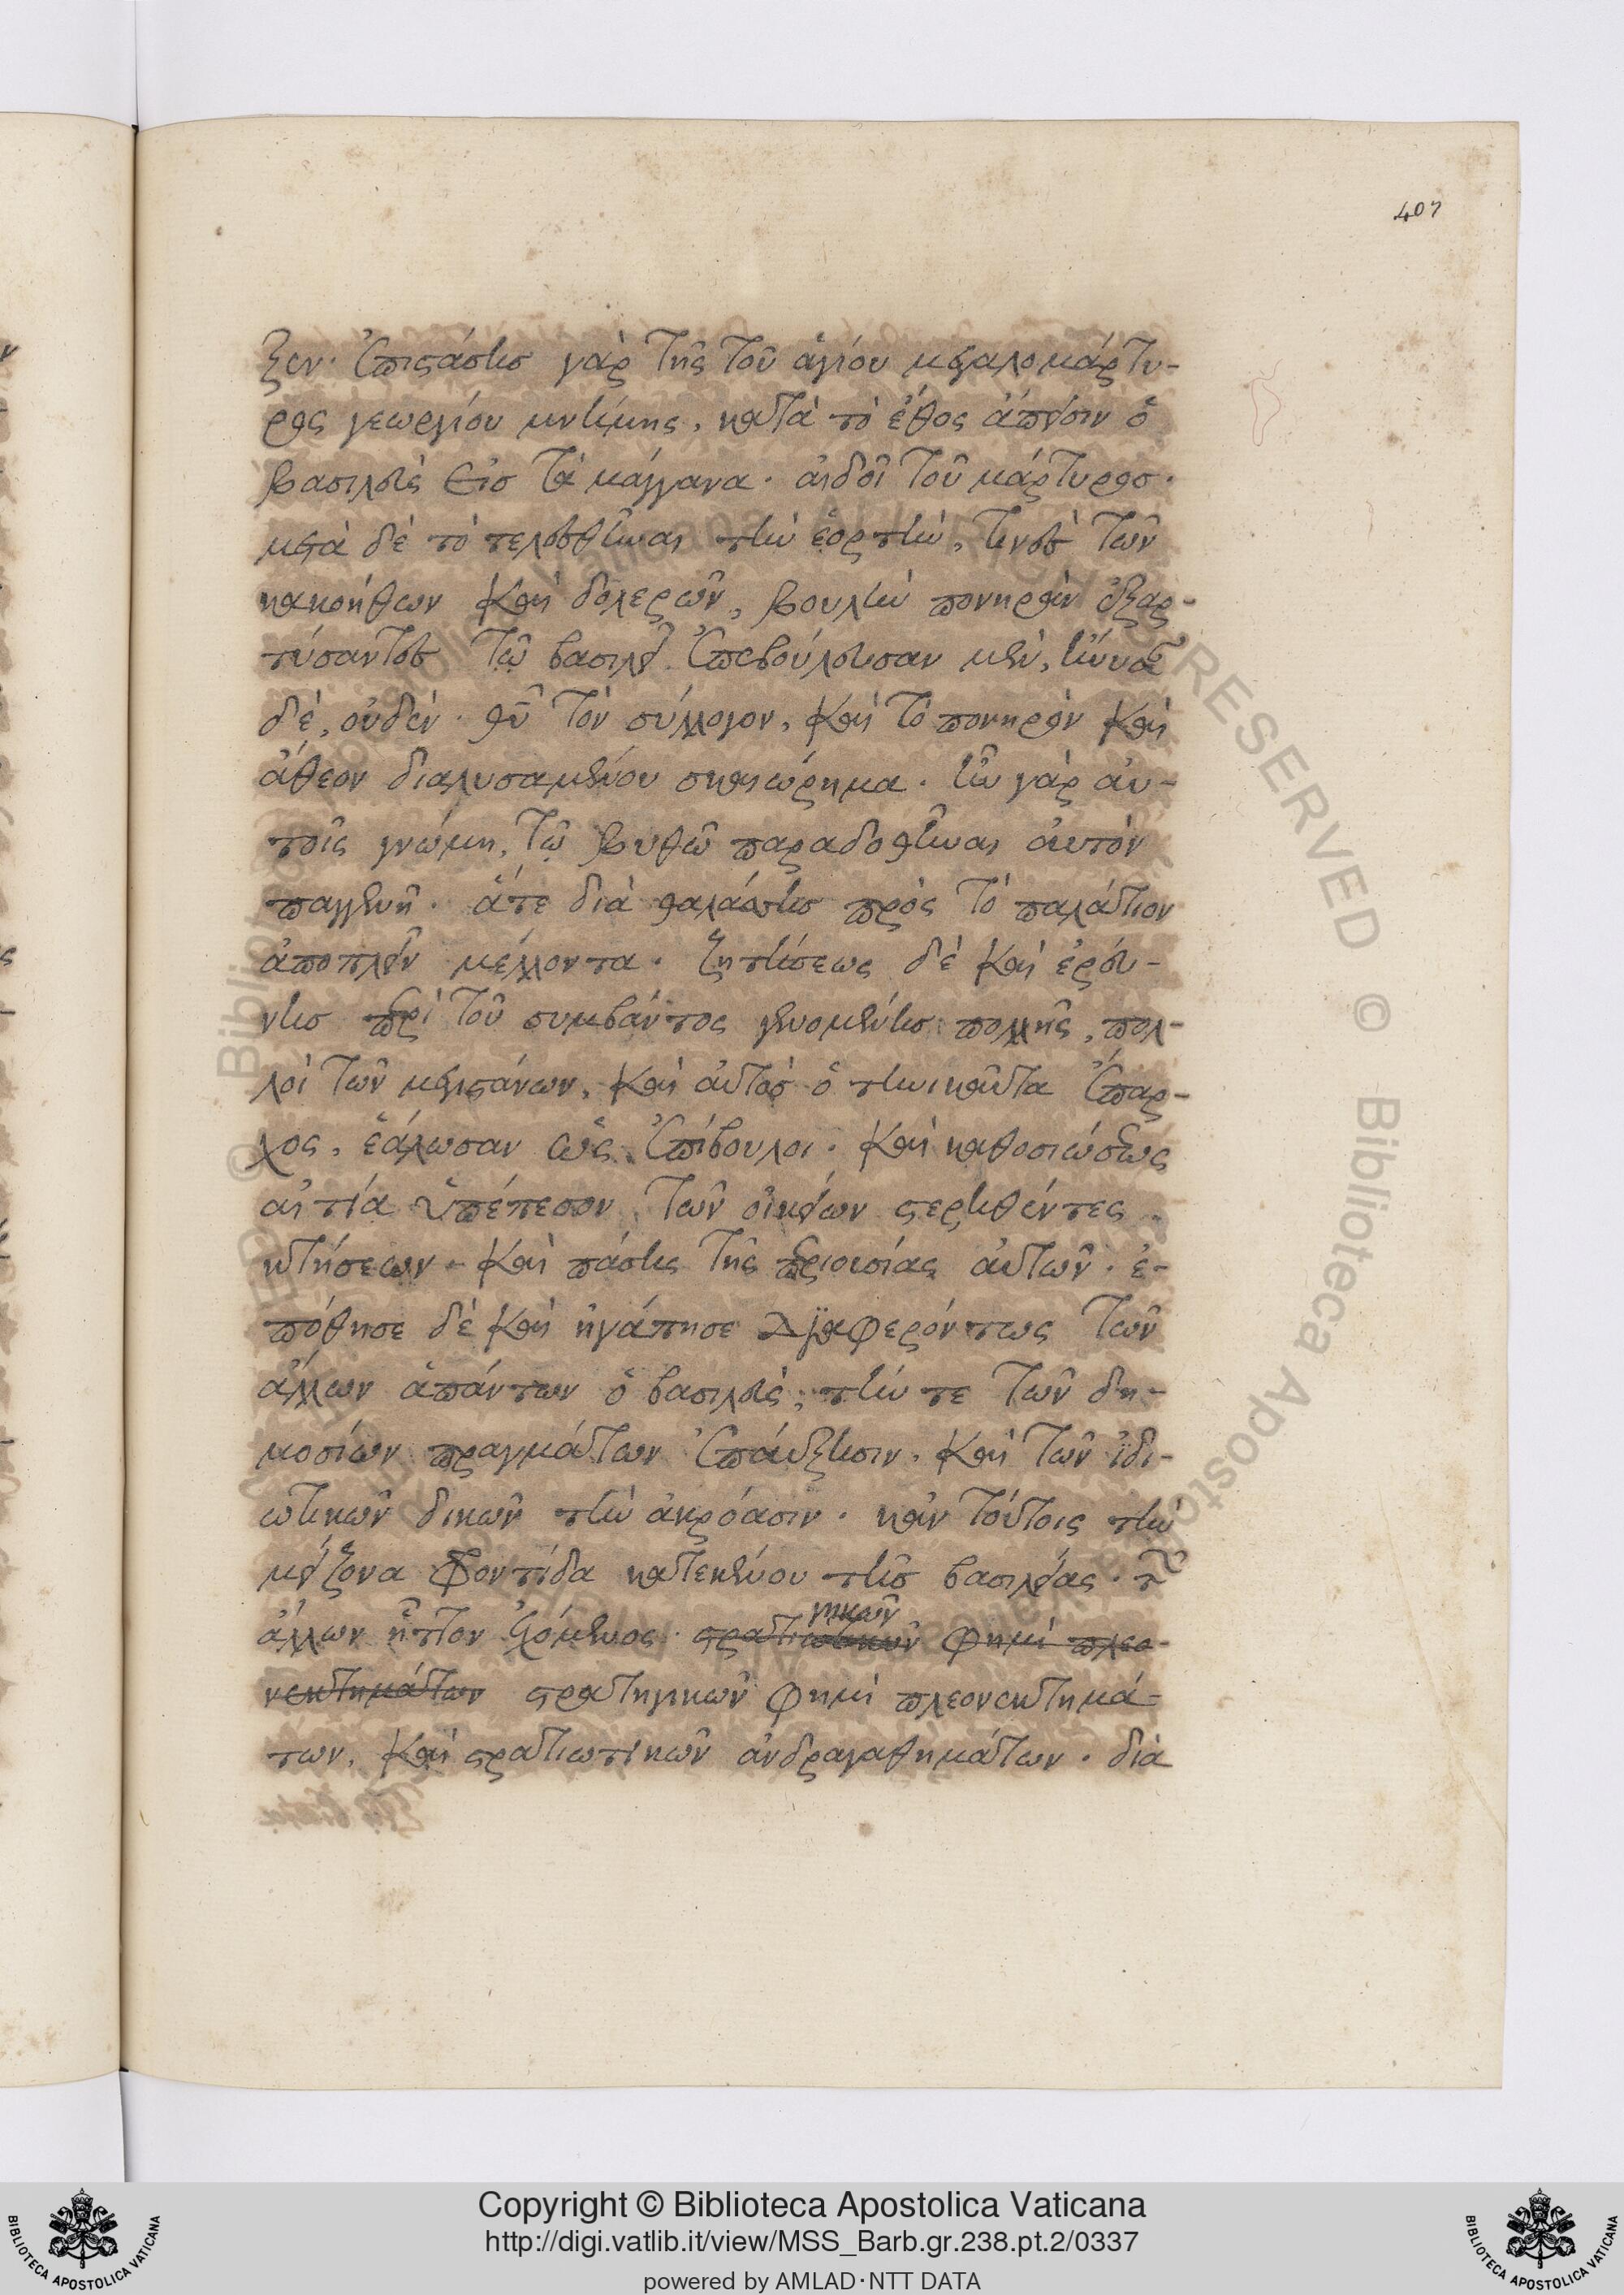 407
ξεν. ἐπιστάσης γὰρ τῆς τοῦ ἁγίου μεγαλομάρτυ-
ρος γεωργίου μνήμης, κατὰ τὸ ἔθος ἄπεισιν ὁ
βασιλεὺς εἰς τὰ μάγγανα. αἰδοῖ τοῦ μάρτυρος.
μετὰ δὲ τὸ τελεσθῆναι τὴν ἑορτὴν, τινὲς τῶν
κακοήθων καὶ δολερῶν, βουλὴν πονηρὰν ἐξαρ-
τύσαντες τῷ βασιλεῖ ἐπεβούλευσαν μὲν, ἤνυσαν
δὲ, οὐδέν. θεοῦ τὸν σύλλογον, καὶ τὸ πονηρὸν καὶ
ἄθεον διαλυσαμένου σκαιώρημα. ἦν γὰρ αὐ-
τοῖς γνώμη, τῷ βυθῷ παραδοθῆναι αὐτὸν
παγγενῆ. ἅτε διὰ θαλάσσης πρὸς τὸ παλάτιον
ἀποπλεῖν μέλλοντα. ζητήσεως δὲ καὶ ἐρεύ-
νης περὶ τοῦ συμβάντος γενομένης πολλῆς, πολ-
λοὶ τῶν μεγιστάνων, καὶ αὐτὸς ὁ τηνικαῦτα ἔπαρ-
χος, ἑάλωσαν ὡς ἐπίβουλοι. καὶ καθοσιώσεως
αἰτίᾳ ὑπέπεσον, τῶν οἰκείων στερηθέντες
κτήσεων. καὶ πάσης τῆς περιουσίας αὐτῶν. ἐ-
πόθησε δὲ καὶ ἠγάπησε διαφερόντως τῶν
ἄλλων ἁπάντων ὁ βασιλεὺς, τήν τε τῶν δη-
μοσίων πραγμάτων ἐπαύξησιν. καὶ τῶν ἰδι-
ωτικῶν δικῶν τὴν ἀκρόασιν. κἀν τούτοις τὴν
μείζονα φροντίδα κατεκένου τῆς βασιλείας. τῶν
ἄλλων ἧττον ἐχόμενος. στρατιωτικῶν γικῶν φημὶ πλεο-
νεκτημάτων στρατηγικῶν φημὶ πλεονεκτημά-
των, καὶ στρατιωτικῶν ἀνδραγαθημάτων. διὰ
Copyright © Biblioteca Apostolica Vaticana
http://digi.vatlib.it/view/MSS_Barb.gr.238.pt.2/0337
powered by AMLAD·NTT DATA